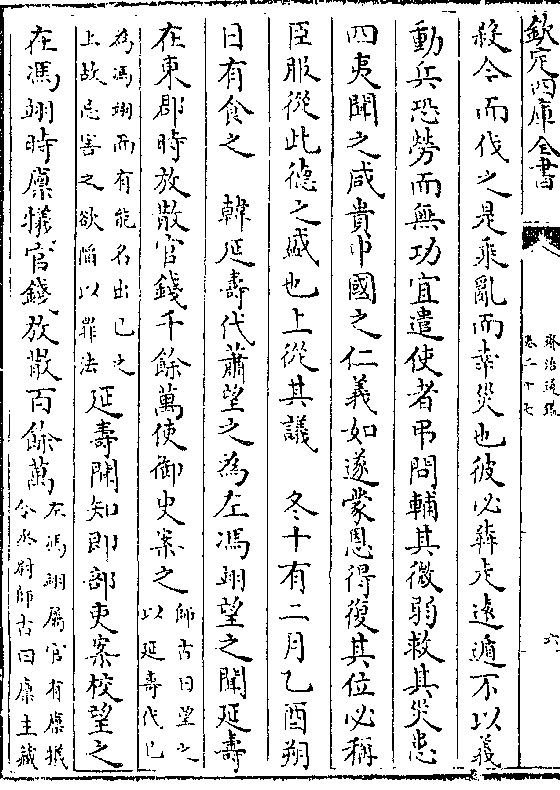 欽定四庫全書
資治通鑑
卷二十七
六
殺今而伐之是乘亂而幸災也彼必犇走遠遁不以義
動兵恐勞而無功宜遣使者弔問輔其微弱救其災患
四夷聞之咸貴中國之仁義如遂蒙恩得復其位必稱
臣服從此德之盛也上從其議　冬十有二月乙酉朔
日有食之　韓延壽代蕭望之為左馮翊望之聞延壽
在東郡時放散官錢千餘萬使御史案之師古曰望之以延壽代己
為馮翊而有能名出己之上故忌害之欲陷以罪法延壽聞知即部吏案校望之
在馮翊時廩犧官錢放散百餘萬左馮翊屬官有廩犧令丞尉師古曰廩主藏